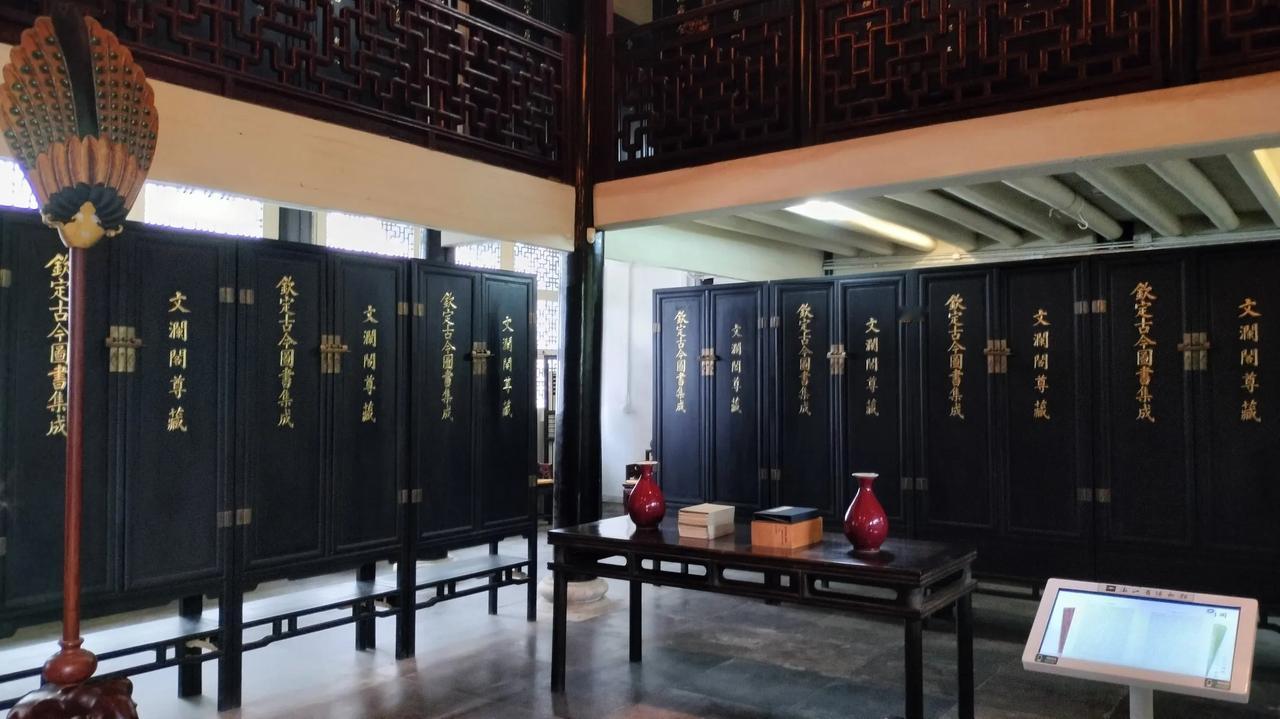 欽定古今圖書集成
文瀾閣尊藏
欽定古今圖書集成
文瀾閣尊藏
欽定古今圖書集成
文瀾閣尊藏
欽定古今圖書集成
文瀾閣尊藏
欽定古今圖書集成
文瀾閣尊藏
欽定古今圖書集成
文瀾閣尊藏
欽定古今圖書集成
文瀾閣尊藏